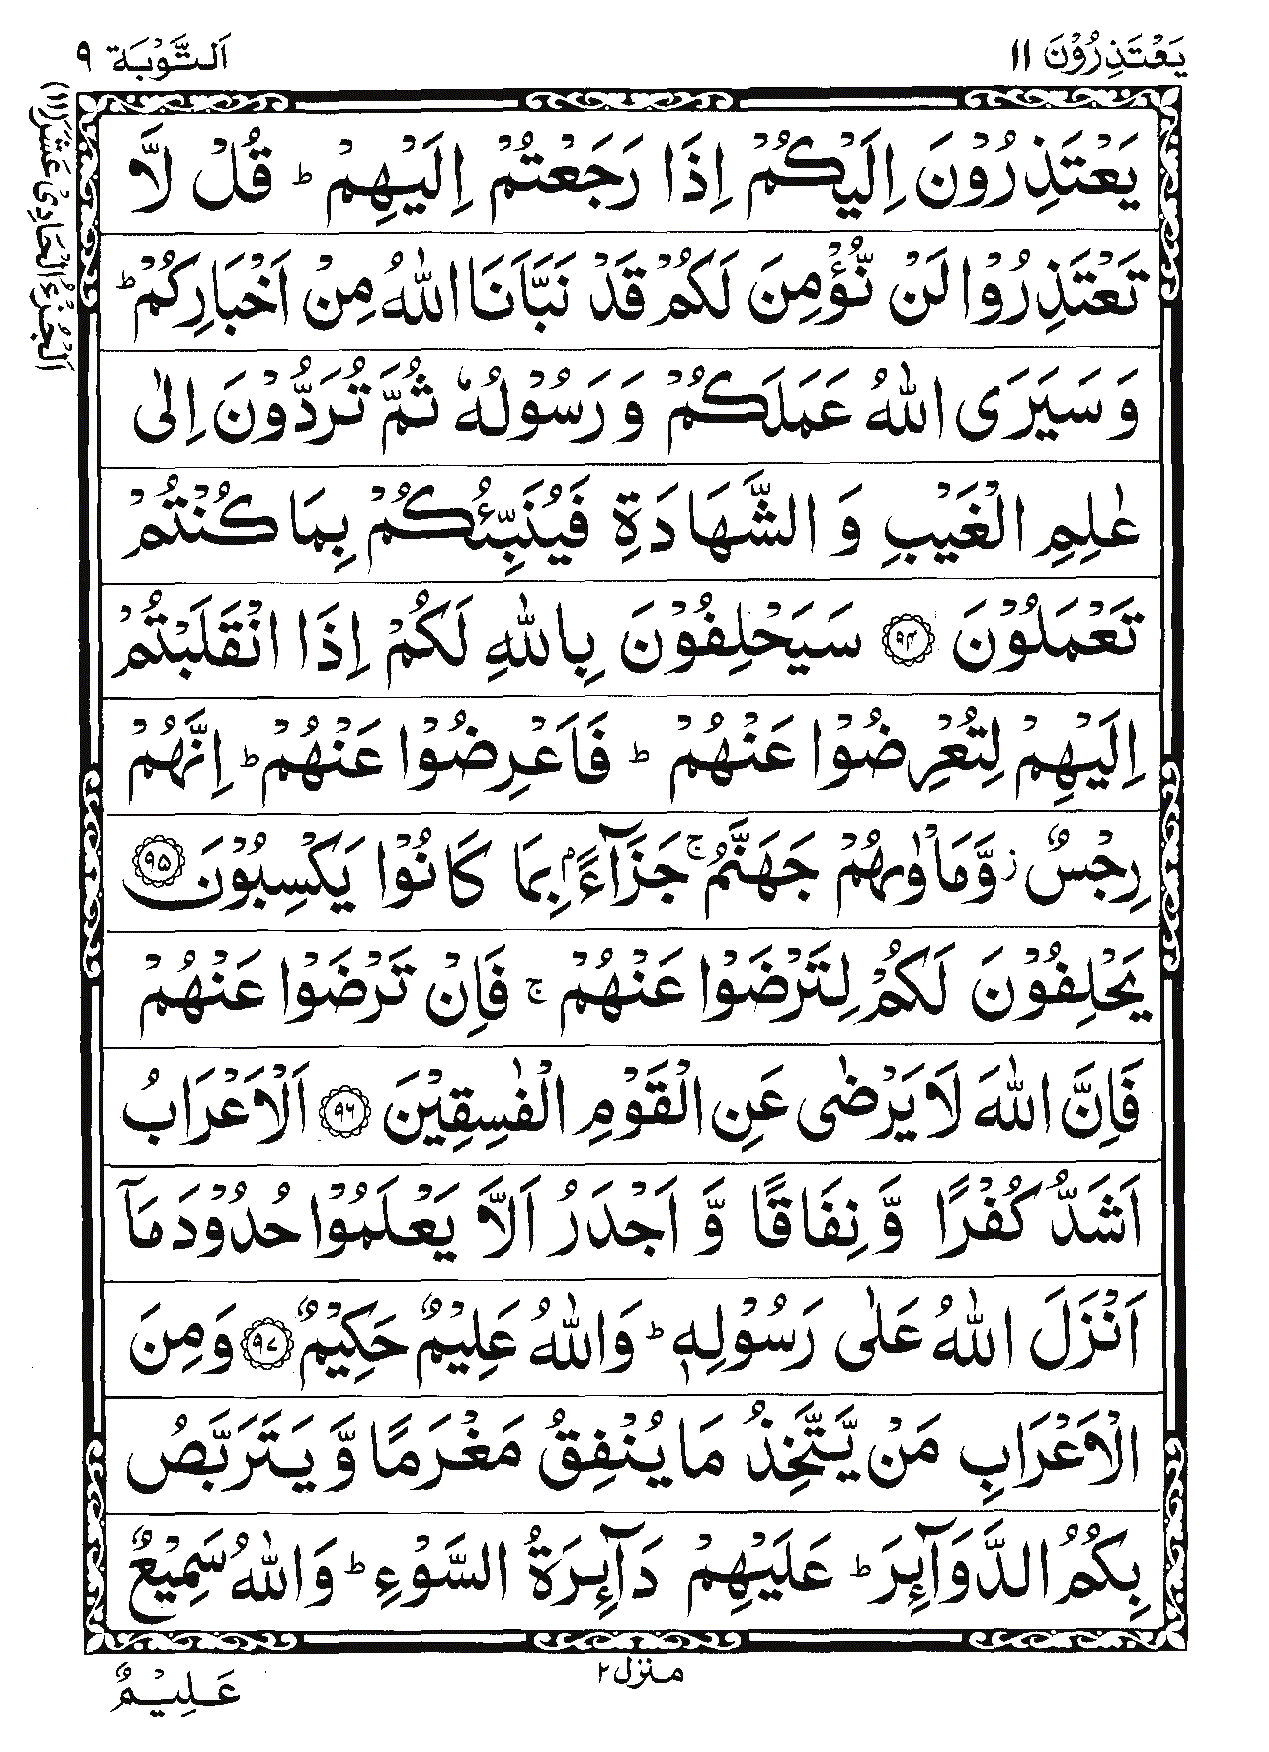 يَعْتَذِرُوْنَ ١١
اَلتَّوْبَة ٩
اَلْجُزْءُ الْحَادِیْ عَشَرَ (١١)
يَعْتَذِرُوْنَ اِلَيْكُمْ اِذَا رَجَعْتُمْ اِلَيْهِمْ ؕ قُلْ لَّا
تَعْتَذِرُوْا لَنْ نُّؤْمِنَ لَكُمْ قَدْ نَبَّاَنَا اللّٰهُ مِنْ اَخْبَارِكُمْ ؕ
وَ سَيَرَى اللّٰهُ عَمَلَكُمْ وَ رَسُوْلُهٗ ثُمَّ تُرَدُّوْنَ اِلٰى
عٰلِمِ الْغَيْبِ وَ الشَّهَادَةِ فَيُنَبِّئُكُمْ بِمَا كُنْتُمْ
تَعْمَلُوْنَ ۝٩٤ سَيَحْلِفُوْنَ بِاللّٰهِ لَكُمْ اِذَا انْقَلَبْتُمْ
اِلَيْهِمْ لِتُعْرِضُوْا عَنْهُمْ ؕ فَاَعْرِضُوْا عَنْهُمْ ؕ اِنَّهُمْ
رِجْسٌ ز وَّمَاْوٰىهُمْ جَهَنَّمُ ۚ جَزَآءًۢ بِمَا كَانُوْا يَكْسِبُوْنَ ۝٩٥
يَحْلِفُوْنَ لَكُمْ لِتَرْضَوْا عَنْهُمْ ۚ فَاِنْ تَرْضَوْا عَنْهُمْ
فَاِنَّ اللّٰهَ لَا يَرْضٰى عَنِ الْقَوْمِ الْفٰسِقِيْنَ ۝٩٦ اَلْاَعْرَابُ
اَشَدُّ كُفْرًا وَّ نِفَاقًا وَّ اَجْدَرُ اَلَّا يَعْلَمُوْا حُدُوْدَ مَآ
اَنْزَلَ اللّٰهُ عَلٰى رَسُوْلِهٖ ؕ وَاللّٰهُ عَلِيْمٌ حَكِيْمٌ ۝٩٧ وَمِنَ
الْاَعْرَابِ مَنْ يَّتَّخِذُ مَا يُنْفِقُ مَغْرَمًا وَّ يَتَرَبَّصُ
بِكُمُ الدَّوَآئِرَ ؕ عَلَيْهِمْ دَآئِرَةُ السَّوْءِ ؕ وَاللّٰهُ سَمِيْعٌ
منزل ٢
عَلِيْمٌ